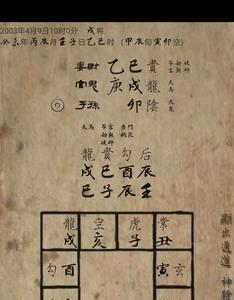 2003年4月9日10时0分 戌将
癸未年丙辰月壬子日乙巳时 (甲辰旬寅卯空)
妻財 乙巳 貴
官鬼 庚戌 龍
◎ 子孫 卯 陰
龍貴勾后
戌巳酉辰
巳子辰壬
龍 皇 虎 常
戌 亥 子 丑
勾 酉 寅 玄